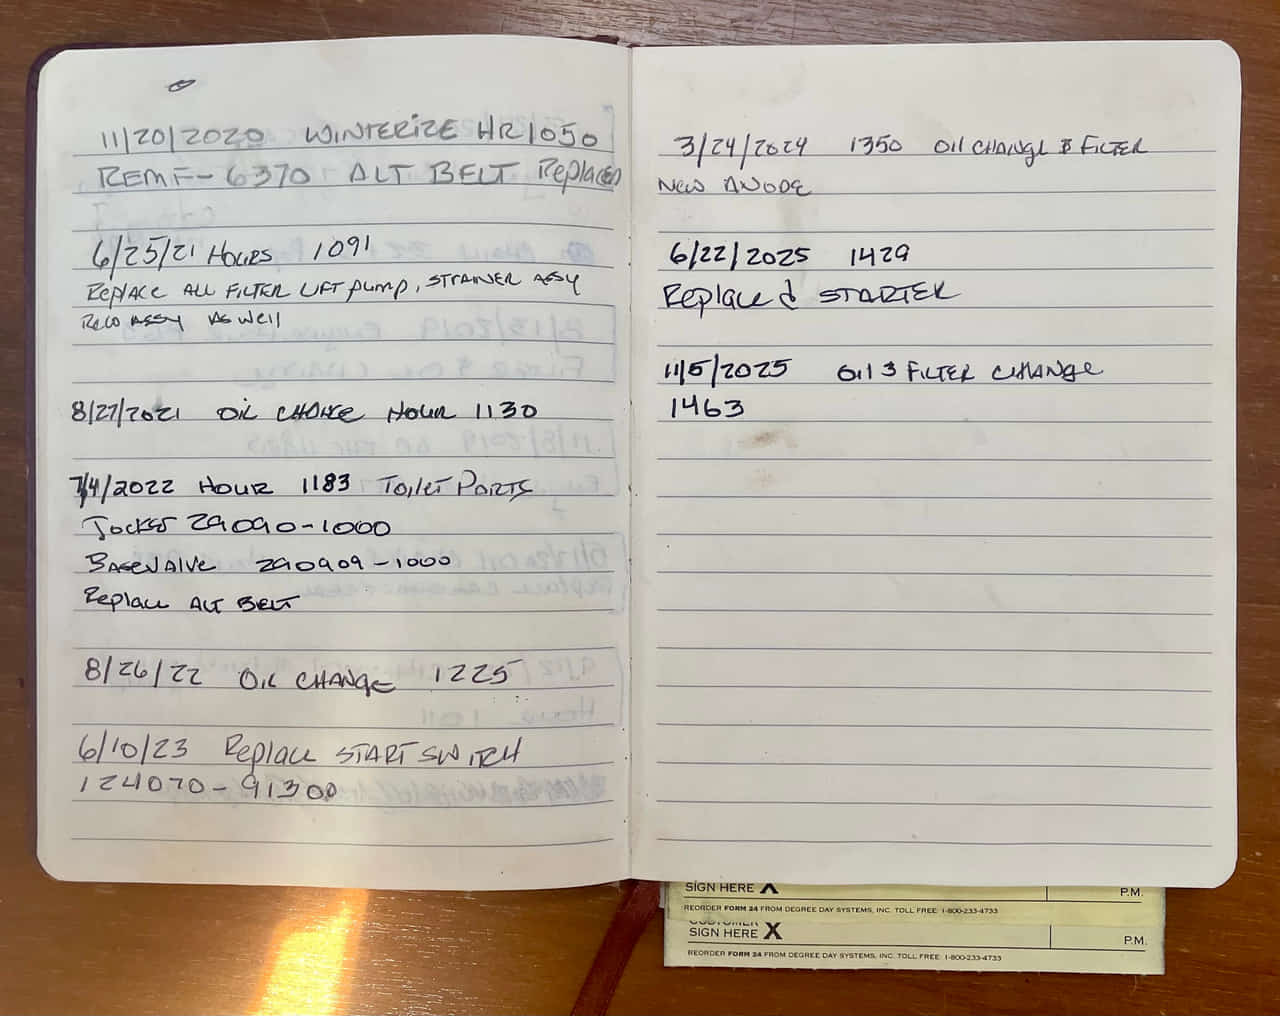 11/20/2020 WINTERIZE HR 1050
REMF-6370 ALT BELT Replaced
6/25/21 HOURS 1091
Replace ALL FILTER LIFT pump, STRAINER ASSY
ASSY AS Well
8/27/2021 OIL CHANGE HOUR 1130
7/4/2022 HOUR 1183 TOILET PARTS
29090-1000
BASEVALVE 290909-1000
Replace ALT BELT
8/26/22 OIL CHANGE 1225
6/10/23 Replace START SWITCH
124070-91300
3/24/2024 1350 OIL CHANGE & FILTER
New ANODE
6/22/2025 1429
Replace d STARTER
11/5/2025 OIL & FILTER CHANGE
1463
SIGN HERE X P.M.
REORDER FORM 24 FROM DEGREE DAY SYSTEMS, INC. TOLL FREE: 1-800-233-4733
CUSTOMER
SIGN HERE X P.M.
REORDER FORM 24 FROM DEGREE DAY SYSTEMS, INC. TOLL FREE: 1-800-233-4733